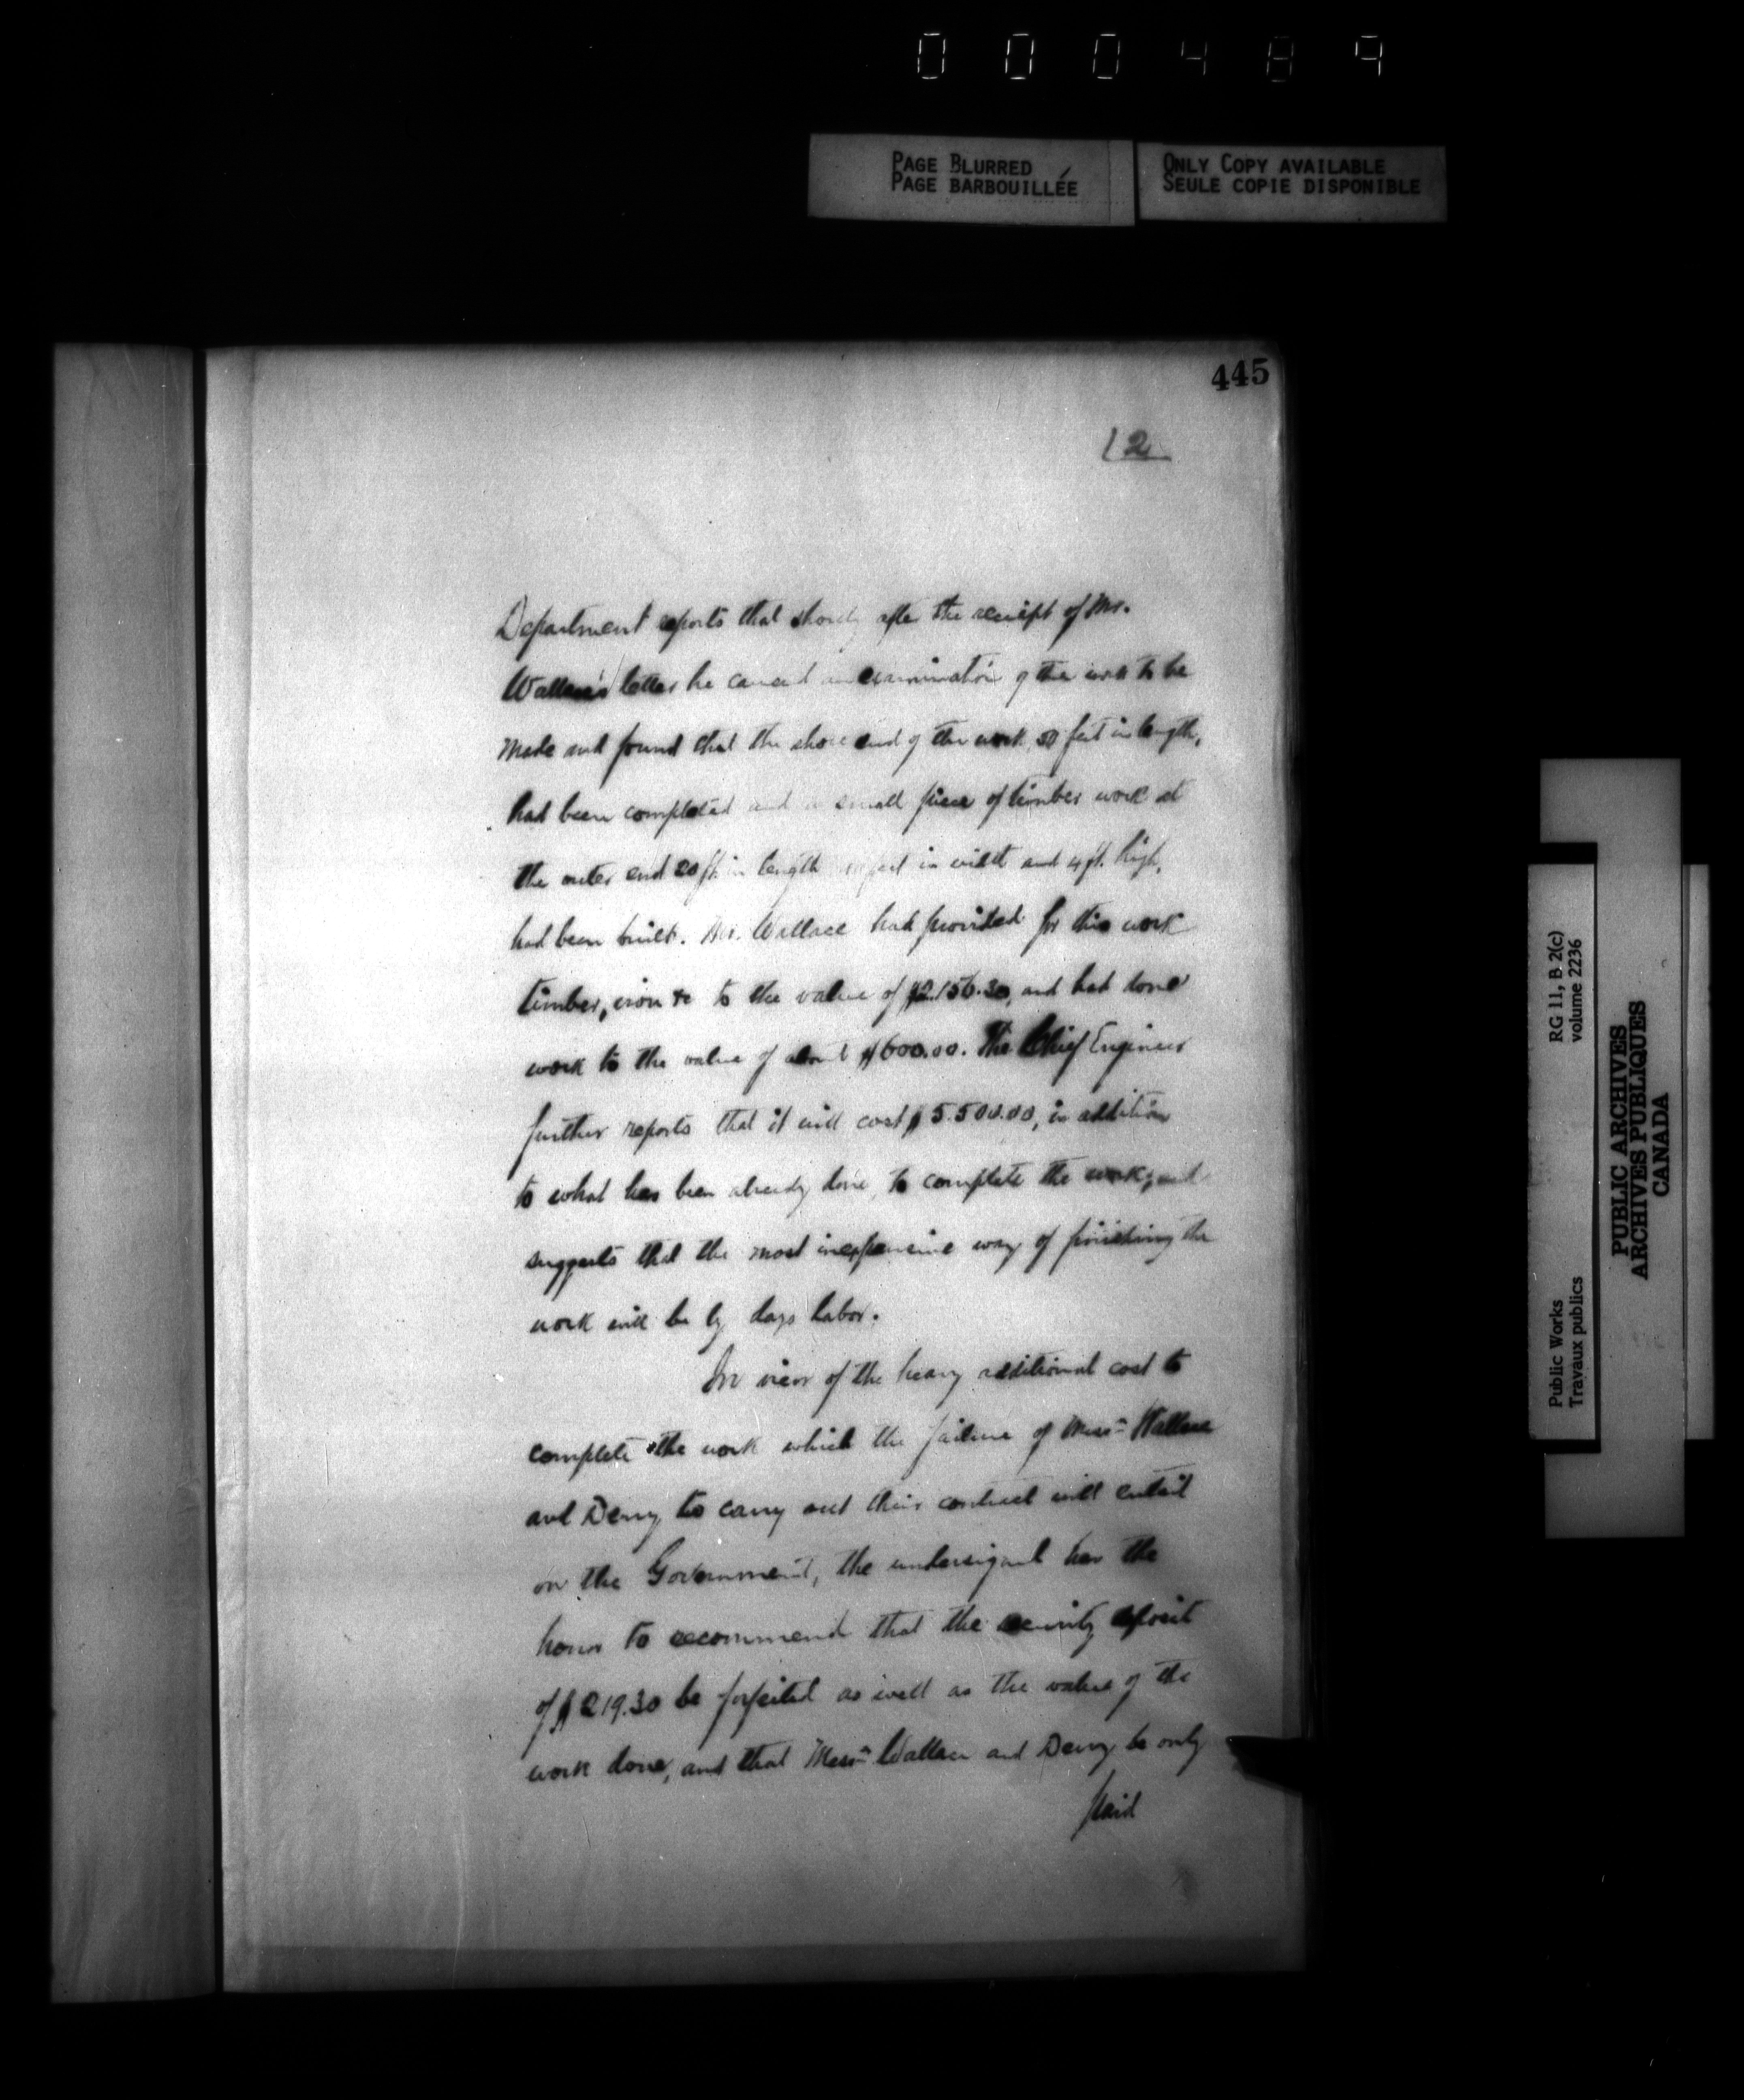 000489
PAGE BLURRED
PAGE BARBOUILLÉE
ONLY COPY AVAILABLE
SEULE COPIE DISPONIBLE
445
(2
Department reports that shortly after the receipt of Mr.
Wallace's letter he caused an examination of the work to be
made and found that the shore end of the work, 50 feet in length,
had been completed and a small piece of timber work at
the outer end 20 ft. in length feet in width and 4 ft. high,
had been built. Mr. Wallace had provided for this work
timber, iron &c to the value of $2.156.30, and had done
work to the value of about $600.00. The Chief Engineer
further reports that it will cost $5.500.00, in addition
to what has been already done, to complete the work; and
suggests that the most inexpensive way of finishing the
work will be by days labor.
In view of the heavy additional cost to
complete the work which the failure of Messrs Wallace
and Deny to carry out their contract will entail
on the Government, the undersigned has the
honor to recommend that the security deposit
of $ 19.30 be forfeited as well as the value of the
work done, and that Messrs Wallace and Deny be only
paid
RG 11, B 2(c)
volume 2236
Public Works
Travaux publics
PUBLIC ARCHIVES
ARCHIVES PUBLIQUES
CANADA